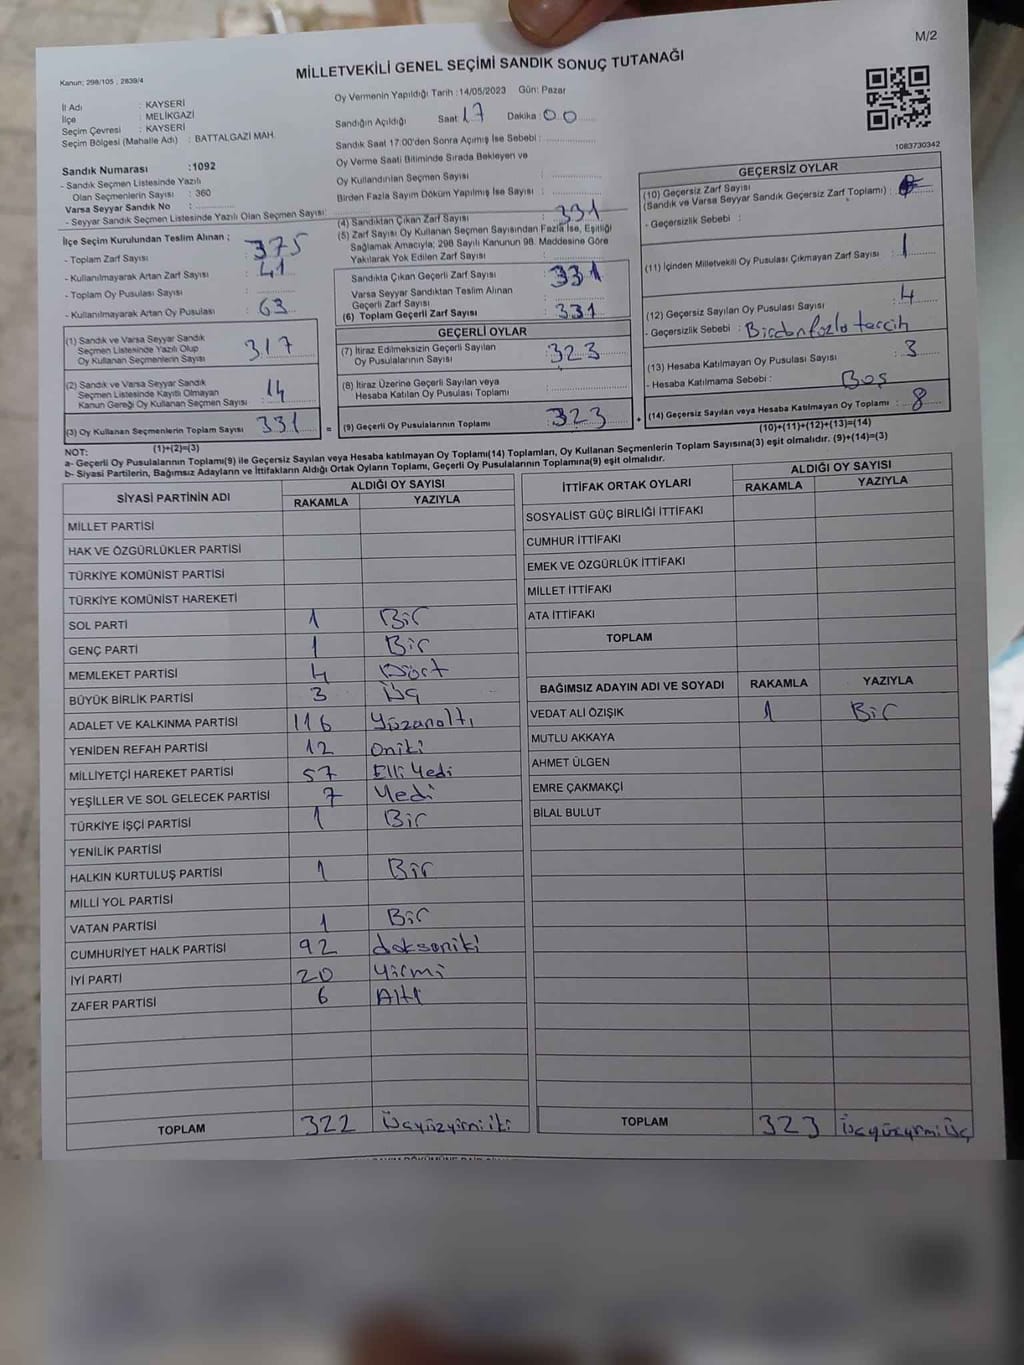 M/2
MİLLETVEKİLİ GENEL SEÇİMİ SANDIK SONUÇ TUTANAĞI
Kanun: 298/105 , 2839/4
İl Adı : KAYSERİ
İlçe : MELİKGAZİ
Seçim Çevresi : KAYSERİ
Seçim Bölgesi (Mahalle Adı) : BATTALGAZİ MAH.
Sandık Numarası :1092
- Sandık Seçmen Listesinde Yazılı
Olan Seçmenlerin Sayısı : 360
Varsa Seyyar Sandık No :
- Seyyar Sandık Seçmen Listesinde Yazılı Olan Seçmen Sayısı:
Oy Vermenin Yapıldığı Tarih :14/05/2023 Gün: Pazar
Sandığın Açıldığı Saat 17 Dakika 00
Sandık Saat 17:00'den Sonra Açımış İse Sebebi :
Oy Verme Saati Bitiminde Sırada Bekleyen ve
Oy Kullandırılan Seçmen Sayısı :
Birden Fazla Sayım Döküm Yapılmış İse Sayısı :
1083730342
İlçe Seçim Kurulundan Teslim Alınan ;
- Toplam Zarf Sayısı : 375
- Kullanılmayarak Artan Zarf Sayısı : 41
- Toplam Oy Pusulası Sayısı :
- Kullanılmayarak Artan Oy Pusulası : 63
(1) Sandık ve Varsa Seyyar Sandık
Seçmen Listesinde Yazılı Olup
Oy Kullanan Seçmenlerin Sayısı : 317
(2) Sandık ve Varsa Seyyar Sandık
Seçmen Listesinde Kayıtlı Olmayan
Kanun Gereği Oy Kullanan Seçmen Sayısı : 14
(3) Oy Kullanan Seçmenlerin Toplam Sayısı : 331
(1)+(2)=(3)
(4) Sandıktan Çıkan Zarf Sayısı : 331
(5) Zarf Sayısı Oy Kullanan Seçmen Sayısından Fazla İse, Eşitliği
Sağlamak Amacıyla; 298 Sayılı Kanunun 98. Maddesine Göre
Yakılarak Yok Edilen Zarf Sayısı :
Sandıkta Çıkan Geçerli Zarf Sayısı : 331
Varsa Seyyar Sandıktan Teslim Alınan
Geçerli Zarf Sayısı :
(6) Toplam Geçerli Zarf Sayısı : 331
GEÇERLİ OYLAR
(7) İtiraz Edilmeksizin Geçerli Sayılan
Oy Pusulalarının Sayısı : 323
(8) İtiraz Üzerine Geçerli Sayılan veya
Hesaba Katılan Oy Pusulası Toplamı :
= (9) Geçerli Oy Pusulalarının Toplamı : 323 +
GEÇERSİZ OYLAR
(10) Geçersiz Zarf Sayısı
(Sandık ve Varsa Seyyar Sandık Geçersiz Zarf Toplamı) :
- Geçersizlik Sebebi :
(11) İçinden Milletvekili Oy Pusulası Çıkmayan Zarf Sayısı : 1
(12) Geçersiz Sayılan Oy Pusulası Sayısı : 4
- Geçersizlik Sebebi : Birden fazla tercih
(13) Hesaba Katılmayan Oy Pusulası Sayısı : 3
- Hesaba Katılmama Sebebi : Boş
(14) Geçersiz Sayılan veya Hesaba Katılmayan Oy Toplamı : 8
(10)+(11)+(12)+(13)=(14)
NOT:
a- Geçerli Oy Pusulalarının Toplamı(9) ile Geçersiz Sayılan veya Hesaba katılmayan Oy Toplamı(14) Toplamları, Oy Kullanan Seçmenlerin Toplam Sayısına(3) eşit olmalıdır. (9)+(14)=(3)
b- Siyasi Partilerin, Bağımsız Adayların ve İttifakların Aldığı Ortak Oyların Toplamı, Geçerli Oy Pusulalarının Toplamına(9) eşit olmalıdır.
SİYASİ PARTİNİN ADI ALDIĞI OY SAYISI
RAKAMLA YAZIYLA
MİLLET PARTİSİ
HAK VE ÖZGÜRLÜKLER PARTİSİ
TÜRKİYE KOMÜNİST PARTİSİ
TÜRKİYE KOMÜNİST HAREKETİ
SOL PARTİ 1 Bir
GENÇ PARTİ 1 Bir
MEMLEKET PARTİSİ 4 Dört
BÜYÜK BİRLİK PARTİSİ 3 Üç
ADALET VE KALKINMA PARTİSİ 116 Yüzonaltı
YENİDEN REFAH PARTİSİ 12 Oniki
MİLLİYETÇİ HAREKET PARTİSİ 57 Elli Yedi
YEŞİLLER VE SOL GELECEK PARTİSİ 7 Yedi
TÜRKİYE İŞÇİ PARTİSİ 1 Bir
YENİLİK PARTİSİ
HALKIN KURTULUŞ PARTİSİ 1 Bir
MİLLİ YOL PARTİSİ
VATAN PARTİSİ 1 Bir
CUMHURİYET HALK PARTİSİ 92 doksaniki
İYİ PARTİ 20 Yirmi
ZAFER PARTİSİ 6 Altı
TOPLAM 322 Üçyüzyirmiiki
İTTİFAK ORTAK OYLARI ALDIĞI OY SAYISI
RAKAMLA YAZIYLA
SOSYALİST GÜÇ BİRLİĞİ İTTİFAKI
CUMHUR İTTİFAKI
EMEK VE ÖZGÜRLÜK İTTİFAKI
MİLLET İTTİFAKI
ATA İTTİFAKI
TOPLAM
BAĞIMSIZ ADAYIN ADI VE SOYADI RAKAMLA YAZIYLA
VEDAT ALİ ÖZIŞIK 1 Bir
MUTLU AKKAYA
AHMET ÜLGEN
EMRE ÇAKMAKÇİ
BİLAL BULUT
TOPLAM 323 Üçyüzyirmi Üç